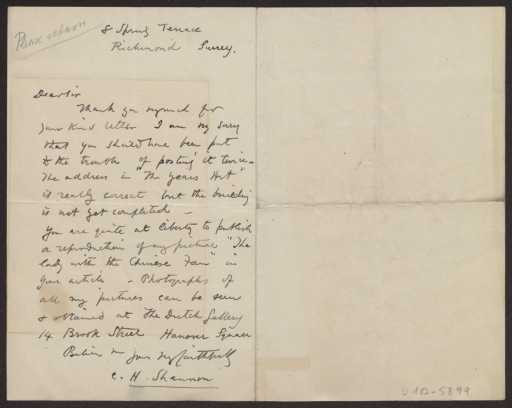 8 Spring Terrace
Richmond Surrey.
Dear Sir
Thank you very much for
your kind letter I am very sorry
that you should have been put
to the trouble of posting it twice -
the address in "The Years Art"
is really correct but the building
is not yet completed -
You are quite at liberty to publish
a reproduction of my picture "The
lady with the Chinese Fan" in
your article - Photographs of
all my pictures can be seen
& obtained at The Dutch Gallery
14 Brook Street Hanover Square
Believe me yours very faithfully
C. H. Shannon